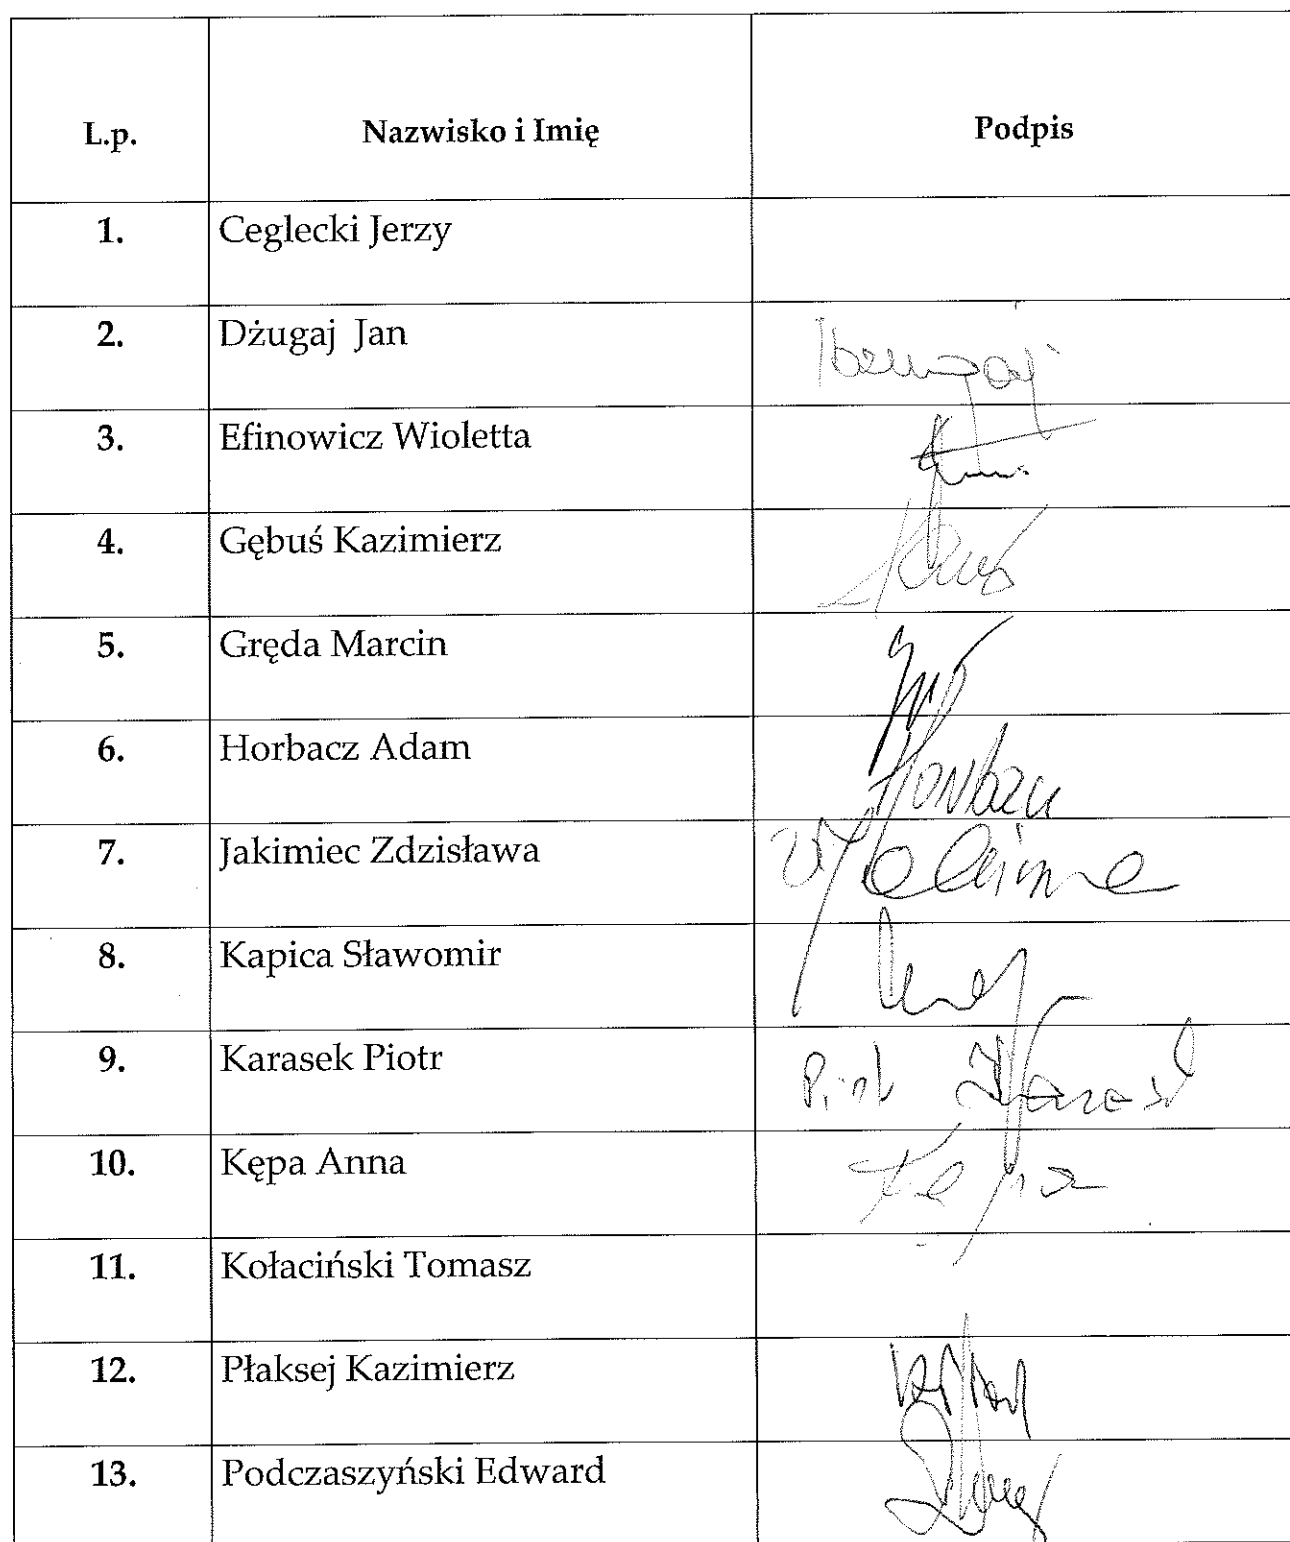 L.p. Nazwisko i Imię Podpis
1. Ceglecki Jerzy
2. Dżugaj Jan
3. Efinowicz Wioletta
4. Gębuś Kazimierz
5. Gręda Marcin
6. Horbacz Adam
7. Jakimiec Zdzisława
8. Kapica Sławomir
9. Karasek Piotr
10. Kępa Anna Kępa
11. Kołaciński Tomasz
12. Płaksej Kazimierz
13. Podczaszyński Edward